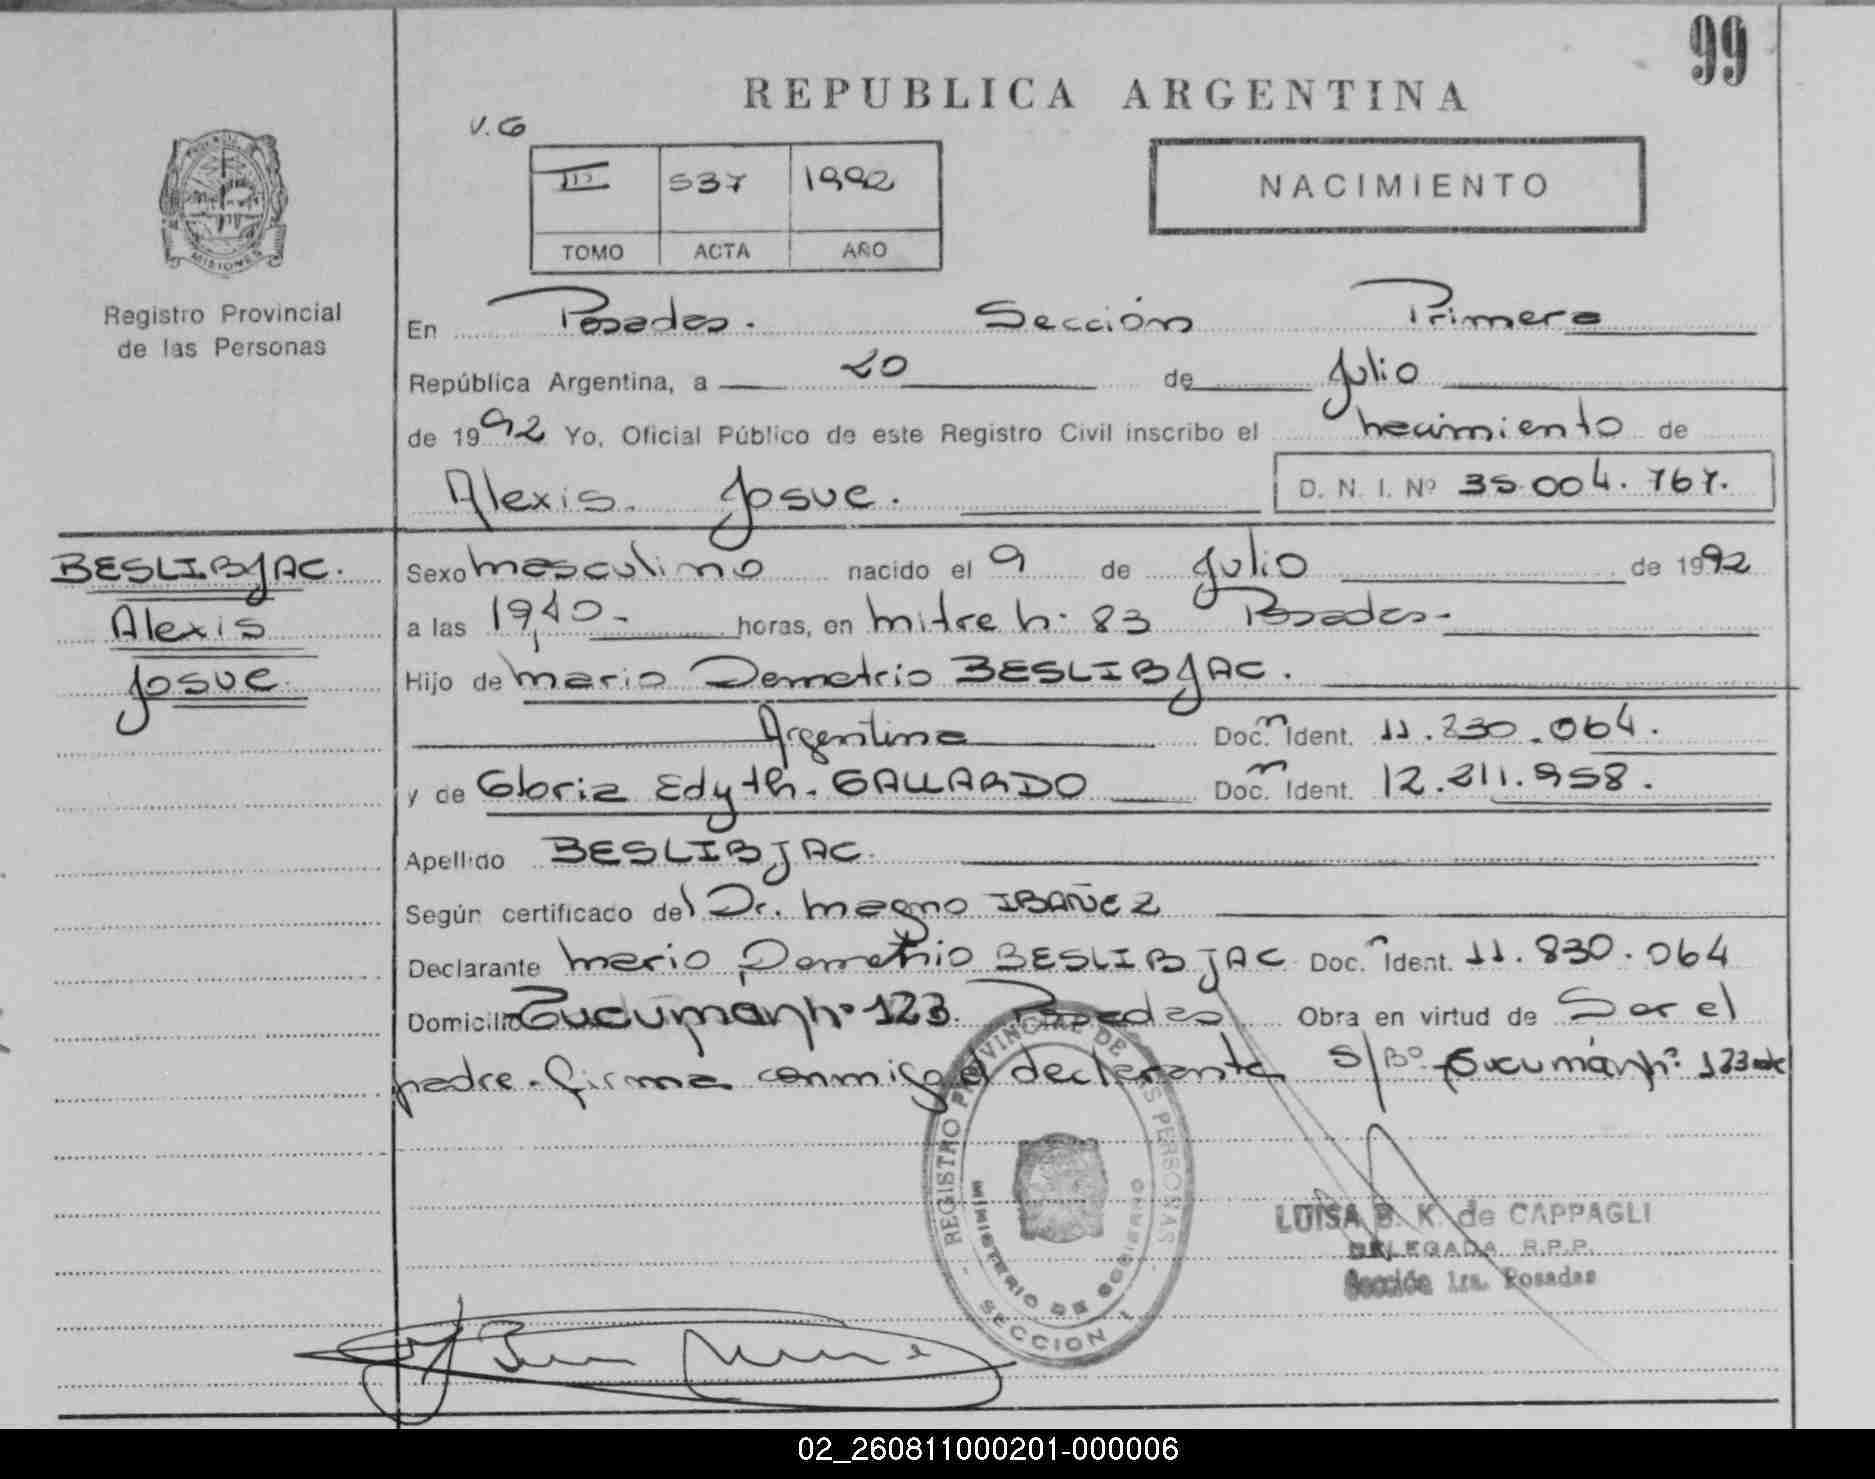 99
REPUBLICA ARGENTINA
V.G
III 537 1992
TOMO ACTA AÑO
NACIMIENTO
MISIONES
Registro Provincial
de las Personas
En Posadas. Sección Primera
República Argentina, a 20 de Julio
de 1992 Yo, Oficial Público de este Registro Civil inscribo el nacimiento de
Alexis Josue. D. N. I. Nº 35.004.767.
BESLIBJAC.
Alexis
Josue
Sexo masculino nacido el 9 de Julio de 1992
a las 19,40 horas, en mitre n. 83 Posadas
Hijo de mario Demetrio BESLIBJAC.
Argentina Doc. n Ident. 11.830.064.
y de Gloria Edyth. GALLARDO Doc. n Ident. 12.211.958.
Apellido BESLIBJAC.
Según certificado del Dr. magno IBAÑEZ
Declarante mario Demetrio BESLIBJAC Doc. n Ident. 11.830.064
Domicilio Tucumán nº 123. Posadas Obra en virtud de Ser el
padre. firma conmigo el declarante S/Bº Tucumán nº 123
REGISTRO PROVINCIAL DE LAS PERSONAS
MINISTERIO DE GOBIERNO
SECCION 1
LUISA B. K. de CAPPAGLI
DELEGADA R.P.P.
Sección 1ra. Posadas
02_260811000201-000006